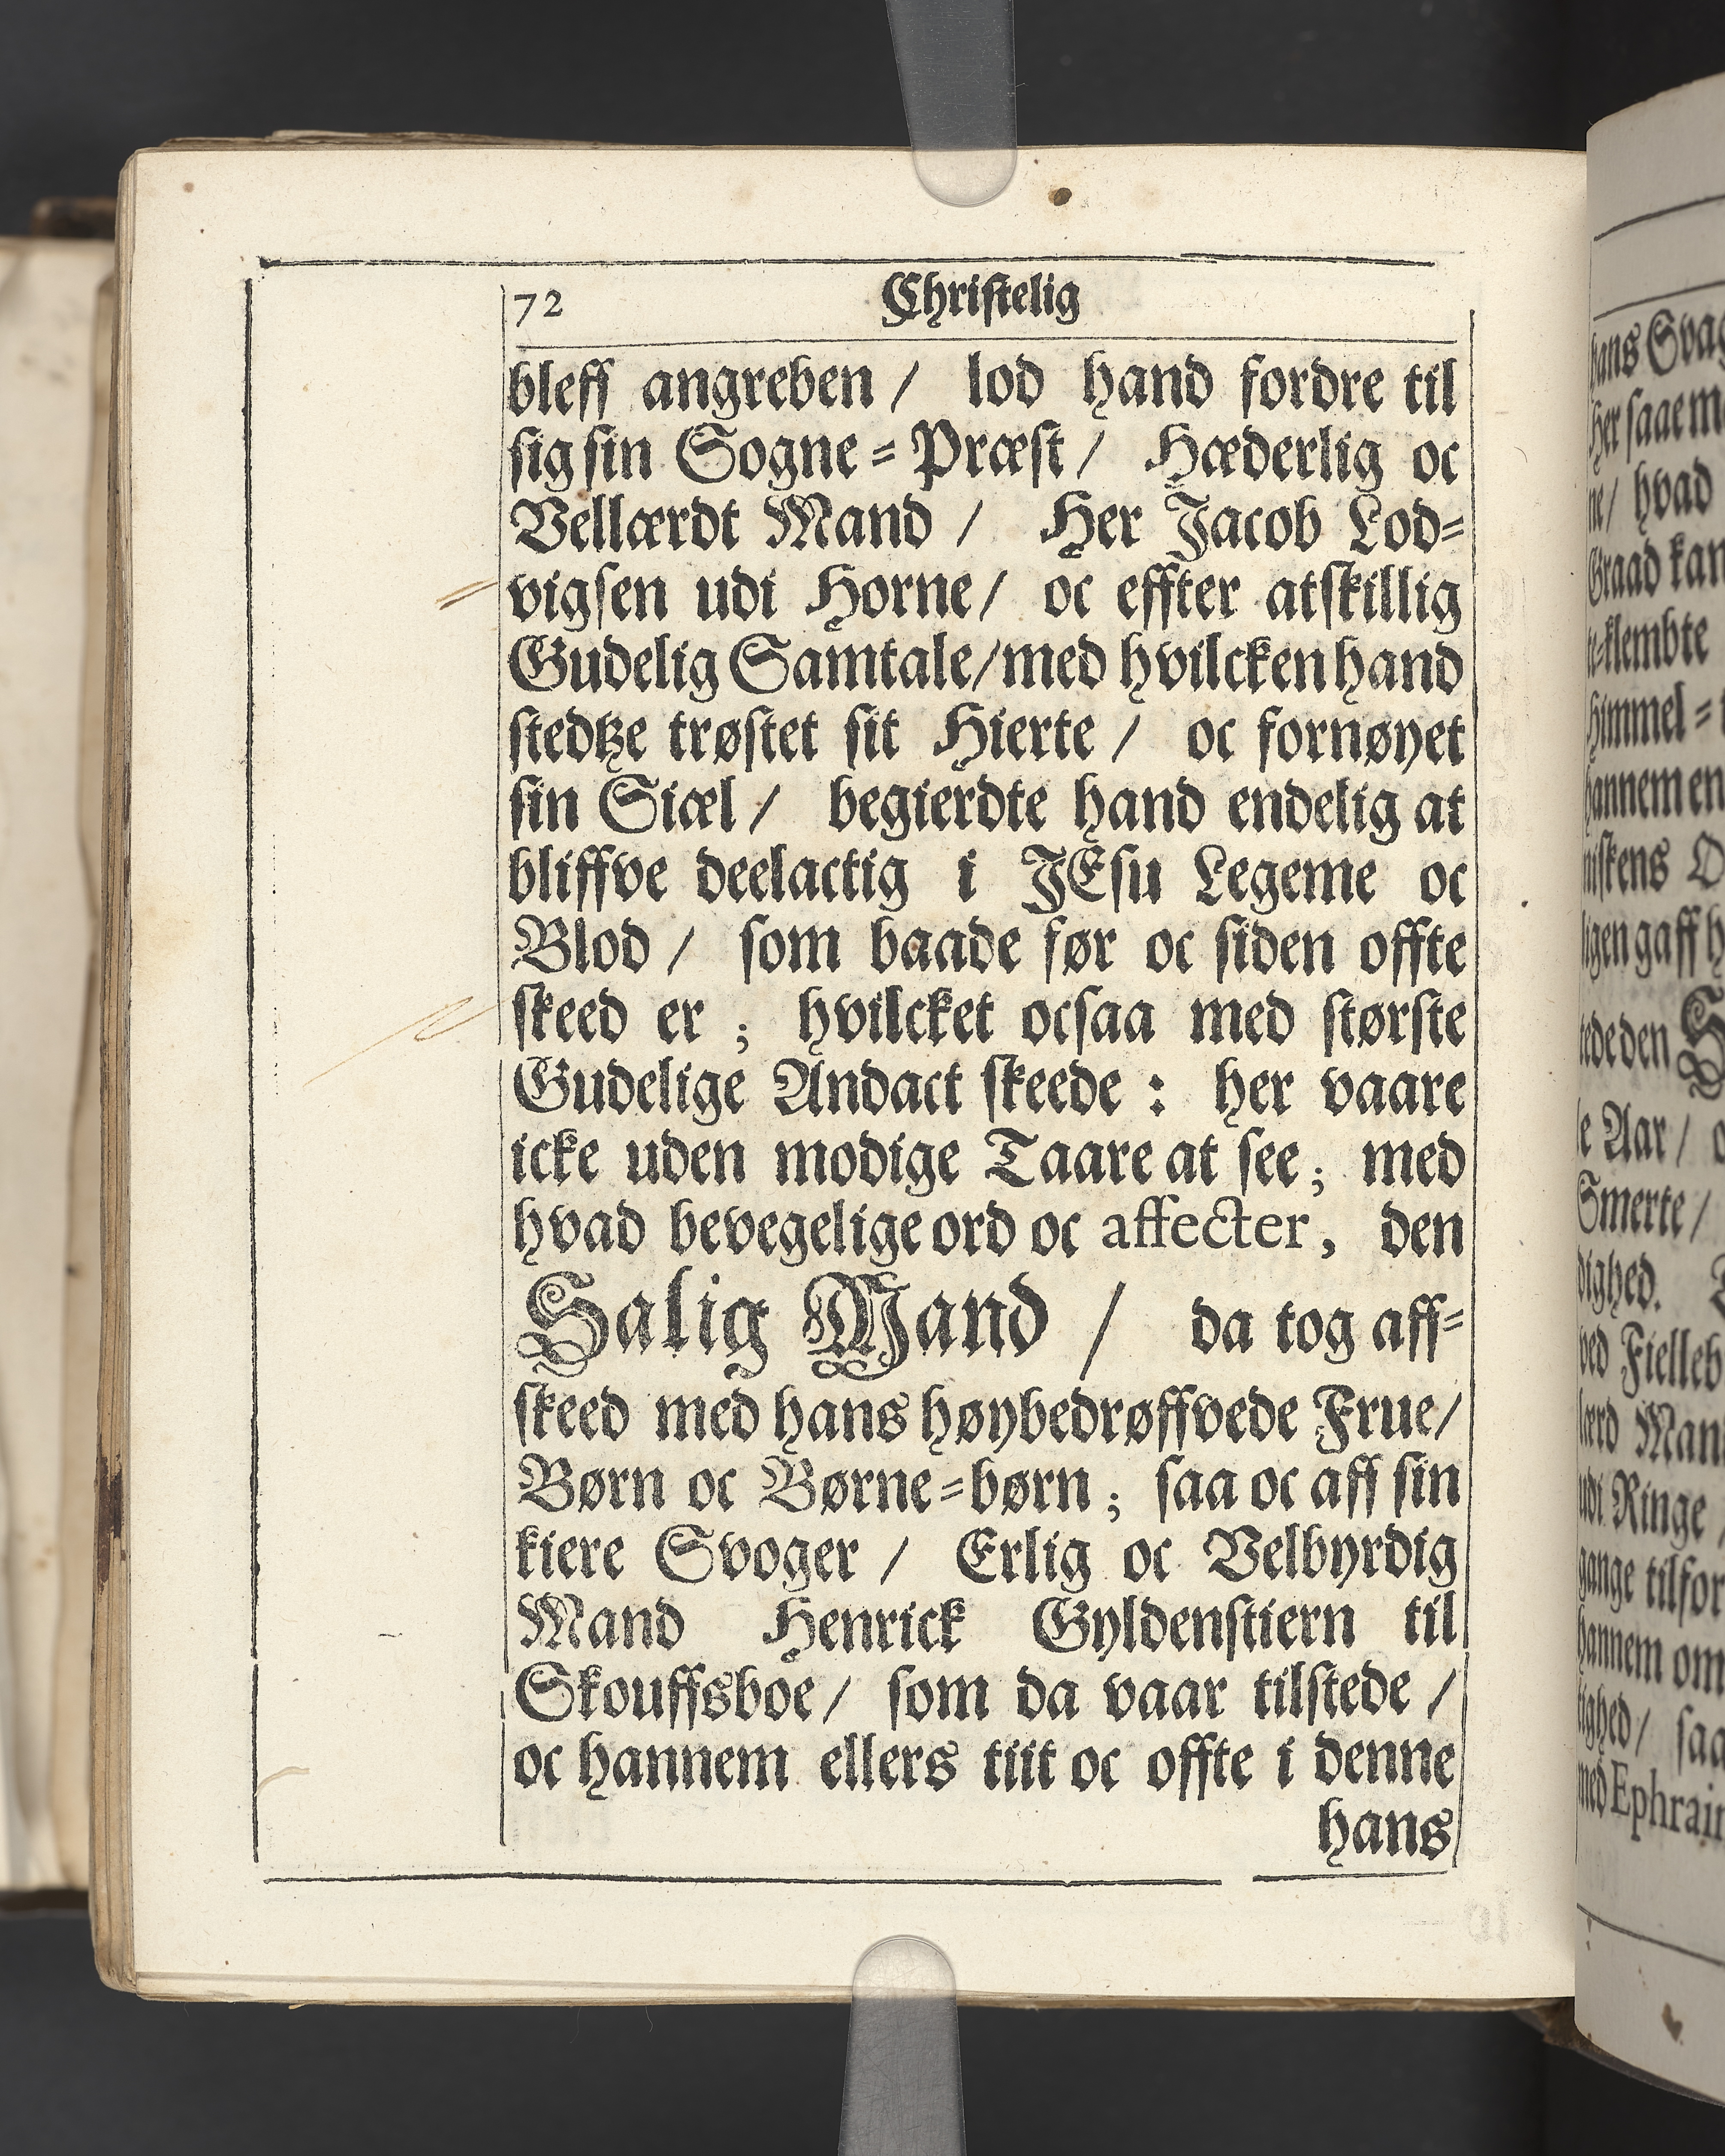 72 Christelig
bleff angreben / lod hand fordre til
sig sin Sogne=Præst / Hæderlig oc
Vellærdt Mand / Her Jacob Lod=
vigsen udi Horne / oc effter atskillig
Gudelig Samtale / med hvilcken hand
stedtze trøstet sit Hierte / oc fornøyet
sin Siæl / begierdte hand endelig at
bliffve deelactig i JEsu Legeme oc
Blod / som baade før oc siden offte
skeed er ; hvilcket ocsaa med største
Gudelige Andact skeede : her vaare
icke uden modige Taare at see ; med
hvad bevegelige ord oc affecter, den
Salig Mand / da tog aff=
skeed med hans høybedrøffvede Frue /
Børn oc Børne=børn ; saa oc aff sin
kiere Svoger / Erlig oc Velbyrdig
Mand Henrick Gyldenstiern til
Skouffsboe / som da vaar tilstede /
oc hannem ellers tiit oc offte i denne
hans
hans
her saae
ne / hvad
Graad kan
himmel =
hannem en
ligen gaff
den
Aar /
Smerte /
ved
udi Ringe
gange tilfor
hannem om
saa
med